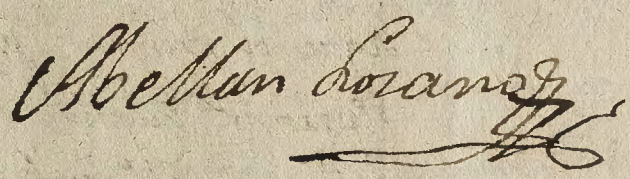 Abellan Lozano